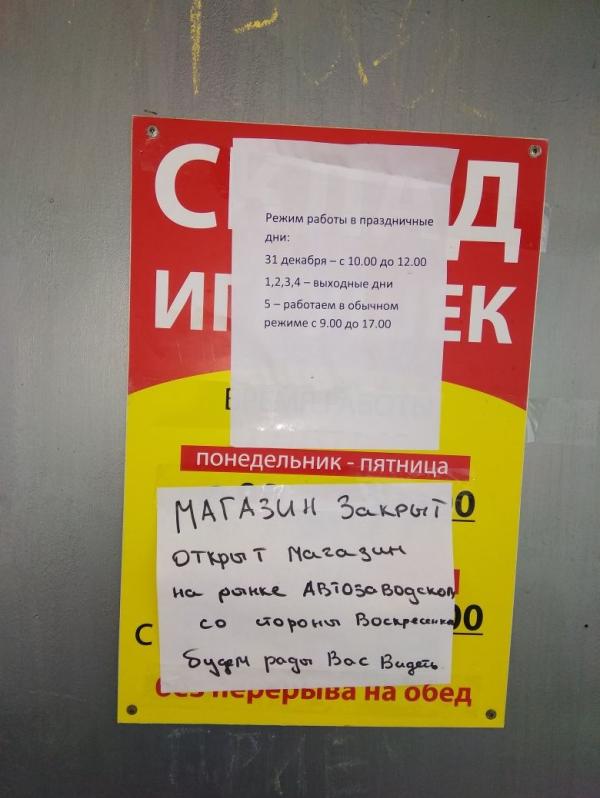 СКЛАД
Режим работы в праздничные
дни:
31 декабря – с 10.00 до 12.00
1,2,3,4 – выходные дни
5 – работаем в обычном
режиме с 9.00 до 17.00
ЕК
ВРЕМЯ РАБОТЫ
понедельник - пятница
00
МАГАЗИН Закрыт
Открыт магазин
на рынке АВТОзаводском
со стороны Воскресенка
будем рады Вас Видеть
с 00
без перерыва на обед